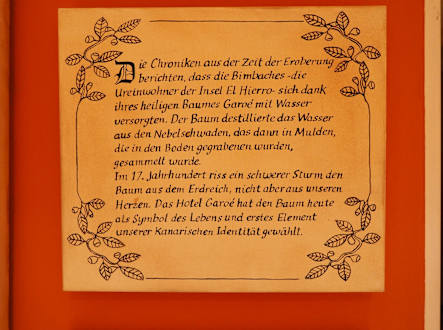 Die Chroniken aus der Zeit der Eroberung
berichten, dass die Bimbaches -die
Ureinwohner der Insel El Hierro- sich dank
ihres heiligen Baumes Garoé mit Wasser
versorgten. Der Baum destillierte das Wasser
aus den Nebelschwaden, das dann in Mulden,
die in den Boden gegrabenen wurden,
gesammelt wurde.
Im 17. Jahrhundert riss ein schwerer Sturm den
Baum aus dem Erdreich, nicht aber aus unseren
Herzen. Das Hotel Garoé hat den Baum heute
als Symbol des Lebens und erstes Element
unserer Kanarischen Identität gewählt.